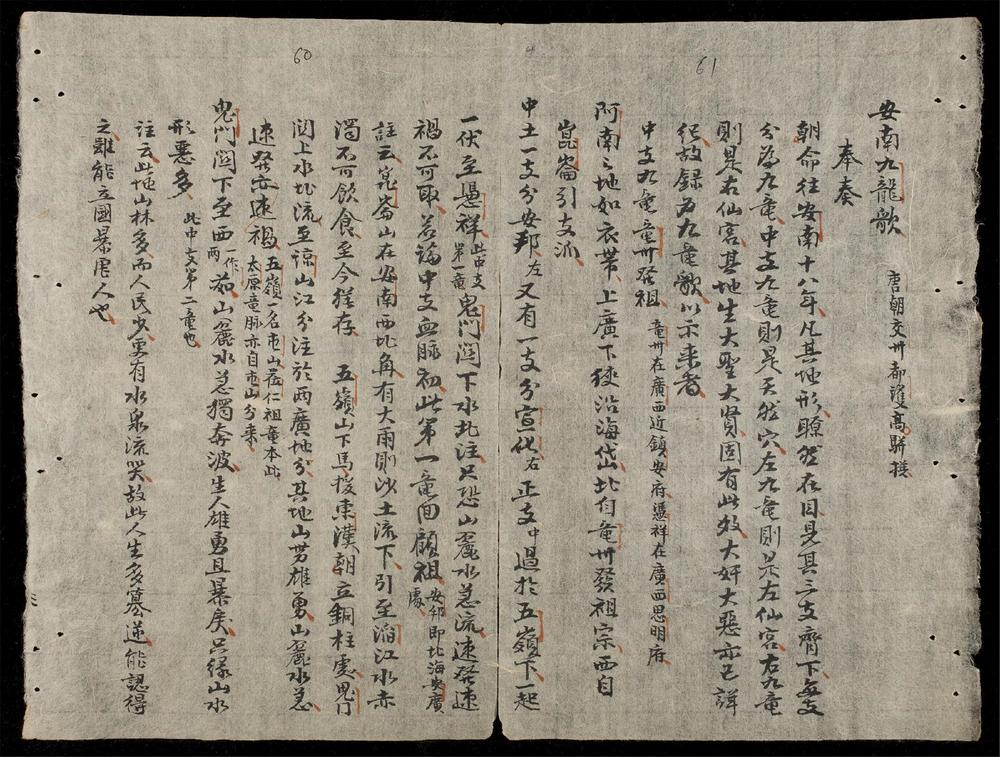 61
安南九龍歌　唐朝交州都護高駢撰
奉奏
朝命往安南十八年凡其地形瞭然在目見其三支齊下每支
分為九竜中支九竜則是天然穴左九竜則是左仙宮右九竜
則是右仙宮其地生大聖大賢固有此效大奸大惡亦已詳
紀故錄為九竜歌以示来者
中支九竜竜州發祖 竜州在廣西近鎮安府憑祥在廣西思明府
阿南之地如衣帶上廣下狹沿海岱北自竜州發祖宗西自
崑崙引支派
中土一支分安邦左又有一支分宣化右正支中過於五嶺下一起
60
一伏至憑祥 此中支第一竜 鬼門関下水北注只恐山麗水急流速發速
禍不可取若論中支血脉初此第一竜回顧祖 安邦即北海安廣處
註云崑崙山在安南西北角有大雨則沙土流下引至滔江水赤
濁不可飲食至今猶存　五嶺山下馬援東漢朝立銅柱處鬼门
関上水北流至諒山江分注於两廣地分其地山势雄勇山麗水急
速發亦速禍 五嶺一名市山蓋仁祖竜本此太原竜脉亦自市山分来
鬼門関下至西 一作两 茹山麗水急獨奔波生人雄勇且暴戾只緣山水
形惡多 此中支第二竜也
註云此地山林多而人民少更有水泉流哭故此人生多篡逆能認得
之雖能立國暴虐人也